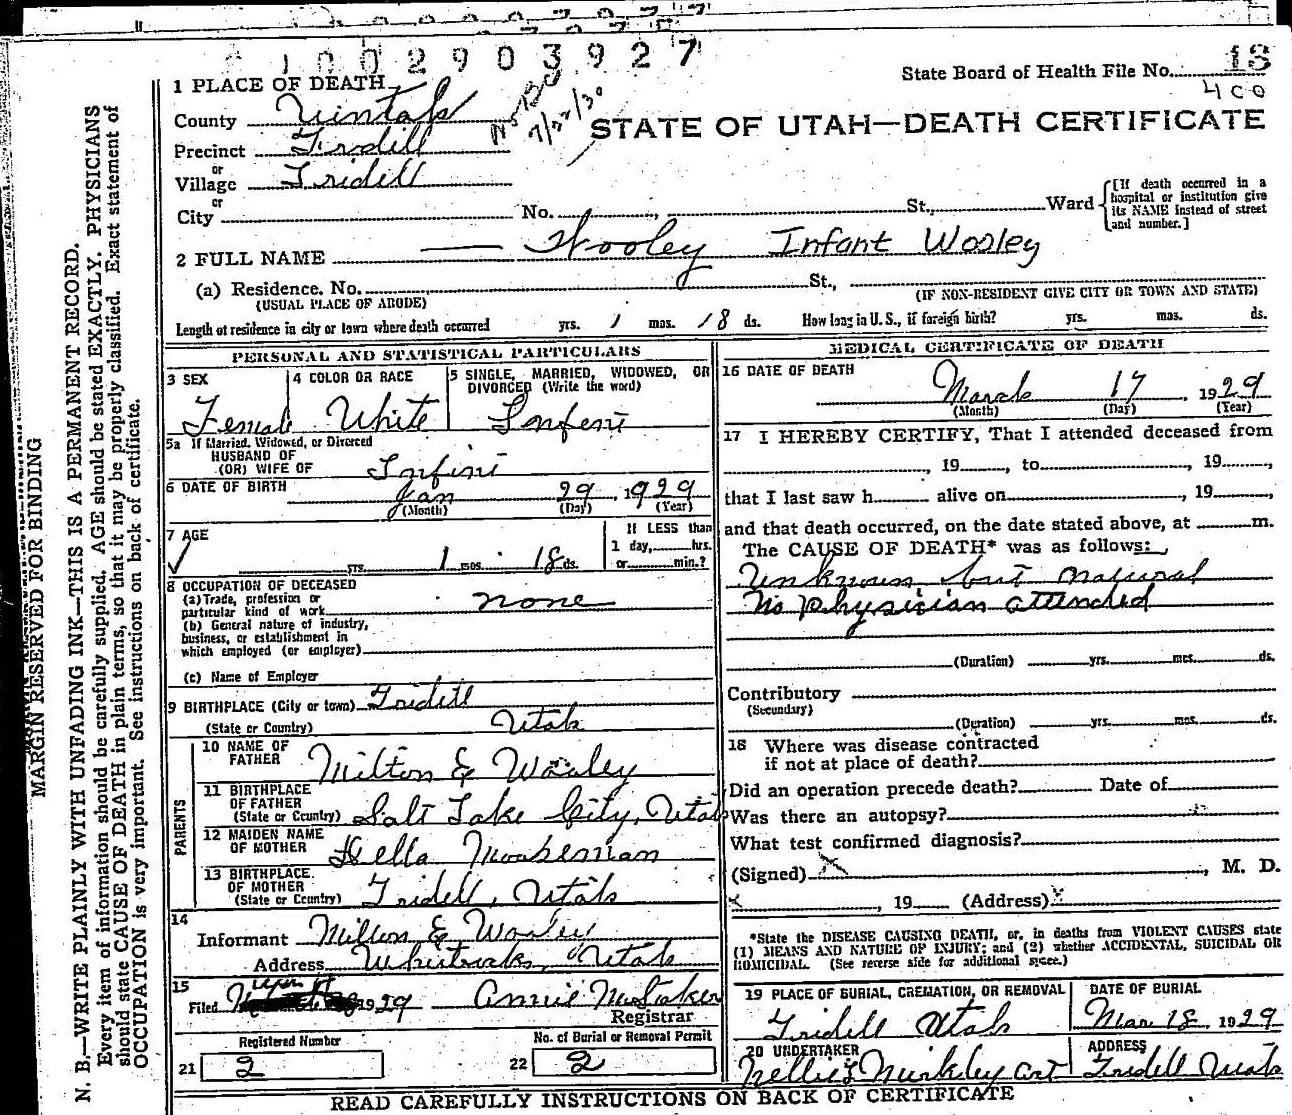 1002903927
State Board of Health File No. 13
400
1 PLACE OF DEATH
County Uintah
7/22/30
STATE OF UTAH—DEATH CERTIFICATE
Precinct Tridell
or
Village Tridell
or
City No. St., Ward
[If death occurred in a hospital or institution give its NAME instead of street and number.]
2 FULL NAME — Wooley Infant Wooley
(a) Residence. No. St.,
(USUAL PLACE OF ABODE) (IF NON-RESIDENT GIVE CITY OR TOWN AND STATE)
Length of residence in city or town where death occurred yrs. 1 mos. 18 ds. How long in U. S., if foreign birth? yrs. mos. ds.
PERSONAL AND STATISTICAL PARTICULARS
3 SEX
Female
4 COLOR OR RACE
White
5 SINGLE, MARRIED, WIDOWED, OR
DIVORCED (Write the word)
Infent
5a If Married, Widowed, or Divorced
HUSBAND OF
(OR) WIFE OF Infint
6 DATE OF BIRTH Jan 29 1929
(Month) (Day) (Year)
7 AGE
yrs. 1 mos. 18 ds.
If LESS than
1 day, hrs.
or min.?
8 OCCUPATION OF DECEASED
(a) Trade, profession or
particular kind of work none
(b) General nature of industry,
business, or establishment in
which employed (or employer)
(c) Name of Employer
9 BIRTHPLACE (City or town) Tridell
(State or Country) Utah
PARENTS
10 NAME OF
FATHER Milton E Wooley
11 BIRTHPLACE
OF FATHER
(State or Country) Salt Lake City, Utah
12 MAIDEN NAME
OF MOTHER Della
13 BIRTHPLACE
OF MOTHER
(State or Country) Tridell, Utah
14
Informant Milton E Wooley
Address Whiterocks, Utah
15
Filed 1929 Annie
Registrar
Registered Number
21 2
No. of Burial or Removal Permit
22 2
MEDICAL CERTIFICATE OF DEATH
16 DATE OF DEATH
March 17, 1929
(Month) (Day) (Year)
17 I HEREBY CERTIFY, That I attended deceased from
, 19 , to , 19 ,
that I last saw h alive on , 19 ,
and that death occurred, on the date stated above, at m.
The CAUSE OF DEATH* was as follows:
Unknown but natural
No physician attended
(Duration) yrs. mos. ds.
Contributory
(Secondary)
(Duration) yrs. mos. ds.
18 Where was disease contracted
if not at place of death?
Did an operation precede death? Date of
Was there an autopsy?
What test confirmed diagnosis?
(Signed) X , M. D.
X , 19 (Address) X
*State the DISEASE CAUSING DEATH, or, in deaths from VIOLENT CAUSES state
(1) MEANS AND NATURE OF INJURY; and (2) whether ACCIDENTAL, SUICIDAL OR
HOMICIDAL. (See reverse side for additional space.)
19 PLACE OF BURIAL, CREMATION, OR REMOVAL
Tridell Utah
DATE OF BURIAL
Mar 18, 1929
20 UNDERTAKER
Nellie
ADDRESS
Tridell Utah
READ CAREFULLY INSTRUCTIONS ON BACK OF CERTIFICATE
MARGIN RESERVED FOR BINDING
N. B.—WRITE PLAINLY WITH UNFADING INK—THIS IS A PERMANENT RECORD.
Every item of information should be carefully supplied. AGE should be stated EXACTLY. PHYSICIANS
should state CAUSE OF DEATH in plain terms, so that it may be properly classified. Exact statement of
OCCUPATION is very important. See instructions on back of certificate.